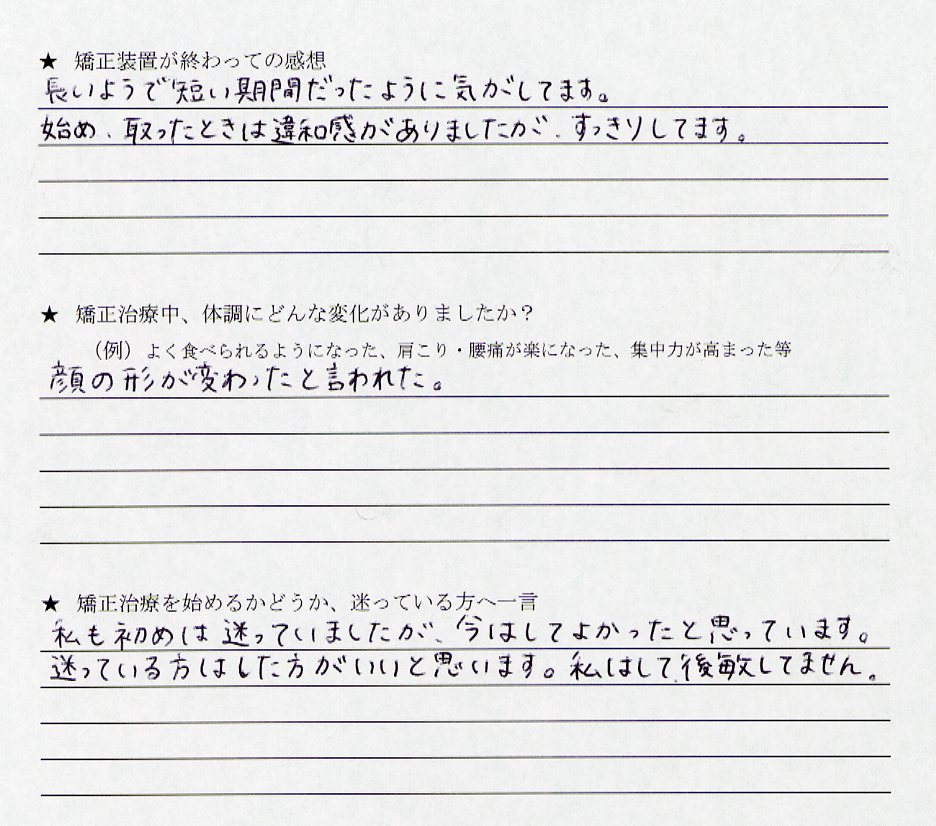 ★ 矯正装置が終わっての感想
長いようで短い期間だったように気がしてます。
始め、取ったときは違和感がありましたが、すっきりしてます。
★ 矯正治療中、体調にどんな変化がありましたか？
（例）よく食べられるようになった、肩こり・腰痛が楽になった、集中力が高まった等
顔の形が変わったと言われた。
★ 矯正治療を始めるかどうか、迷っている方へ一言
私も初めは迷っていましたが、今はしてよかったと思っています。
迷っている方はした方がいいと思います。私はして、後敏してません。